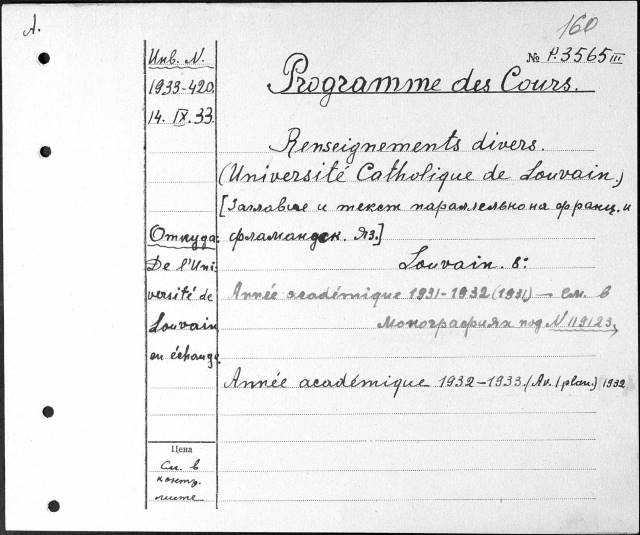 A.
160
№ P.3565 III
Инв. N.
1933-420.
14. IX. 33
Programme des Cours.
Renseignements divers.
(Université Catholique de Louvain.)
[Заглавие и текст параллельно на франц. и
фламандск. яз.]
Louvain. 8:
Année académique 1931-1932 (1931) — См. в
монографиях под N 119123,
Année académique 1932-1933. (Av. 1 plan.) 1932
Откуда:
De l'Uni-
versité de
Louvain
en échange
Цена
См. в
контр.
листе